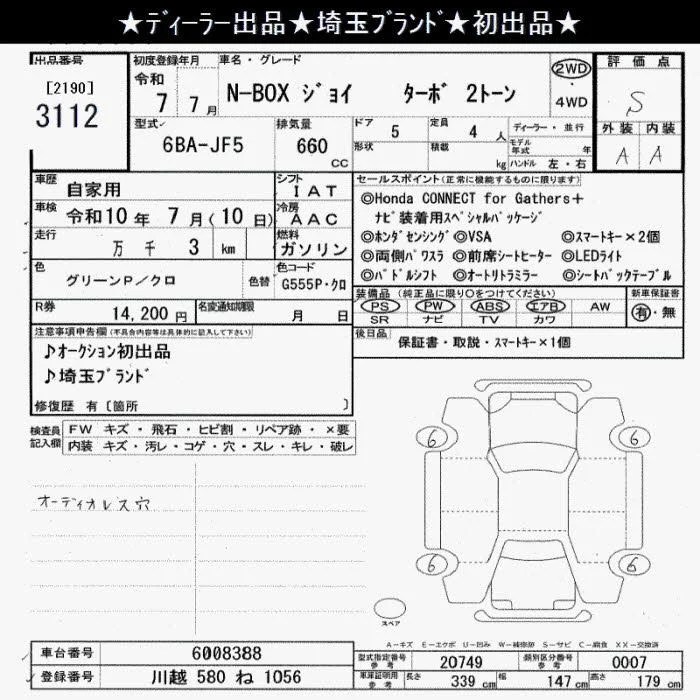 ★ﾃﾞｨｰﾗｰ出品★埼玉ﾌﾞﾗﾝﾄﾞ★初出品★
出品番号
[2190]
3112
初度登録年月
令和
7 7 月
車名・グレード
N-BOX ｼﾞｮｲ ﾀｰﾎﾞ 2ﾄｰﾝ
2WD
・
4WD
評価点
S
外装 内装
A A
型式
6BA-JF5
排気量
660
CC
ドア 5
定員 4 人
形状
積載 kg
ディーラー・並行
モデル年式 年
ハンドル 左・右
車歴 自家用
シフト I A T
車検 令和10 年 7 月(10 日)
冷房 A A C
走行 万 千 3 km
燃料 ガソリン
色 グリーンP／クロ
色替
色コード G555P・ｸﾛ
R券 14,200 円
名変通知期限 月 日
セールスポイント(正常に機能するものに限ります)
◎Honda CONNECT for Gathers＋
ﾅﾋﾞ装着用ｽﾍﾟｼｬﾙﾊﾟｯｹｰｼﾞ
◎ﾎﾝﾀﾞｾﾝｼﾝｸﾞ ◎VSA ◎ｽﾏｰﾄｷｰ×2個
◎両側ﾊﾟﾜｽﾗ ◎前席ｼｰﾄﾋｰﾀｰ ◎LEDﾗｲﾄ
◎ﾊﾟﾄﾞﾙｼﾌﾄ ◎ｵｰﾄﾘﾄﾗﾐﾗｰ ◎ｼｰﾄﾊﾞｯｸﾃｰﾌﾞﾙ
装備品 (純正品に限り○をつけてください)
新車保証書
PS PW ABS エアB AW
SR ナビ TV カワ
有・無
後日品
保証書・取説・ｽﾏｰﾄｷｰ×1個
注意事項申告欄(不具合内容等は具体的に記入して下さい)
♪ｵｰｸｼｮﾝ初出品
♪埼玉ﾌﾞﾗﾝﾄﾞ
修復歴 有〔箇所 〕
検査員記入欄
FW キズ・飛石・ヒビ割・リペア跡・×要
内装 キズ・汚レ・コゲ・穴・スレ・キレ・破レ
オーディオレス穴
6 6
6 6
スペア
A－キズ E－エクボ U－凹み W－補修跡 S－サビ C－腐食 XX－交換済
車台番号 6008388
登録番号 川越 580 ね 1056
型式指定番号 参考 20749
類別区分番号 参考 0007
車庫証明用 参考 長さ 339 cm 幅 147 cm 高さ 179 cm